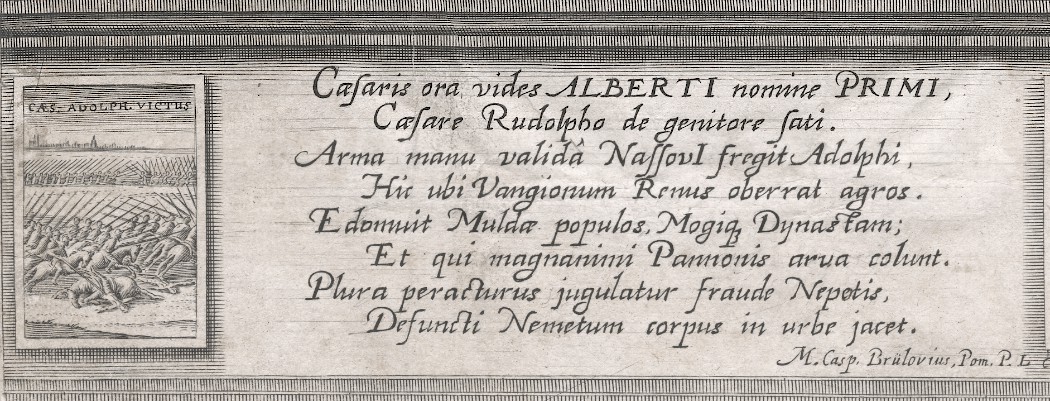 CÆS. ADOLPH. VICTUS
Cæſaris ora vides ALBERTI nomine PRIMI,
Cæſare Rudolpho de genitore ſati.
Arma manu validâ NaſſovI fregit Adolphi,
Hic ubi Vangionum Renus oberrat agros.
Edomuit Muldæ populos, Mogiq; Dynastam;
Et qui magnanimi Pannonis arva colunt.
Plura peracturus jugulatur fraude Nepotis,
Defuncti Nemetum corpus in urbe jacet.
M. Casp. Brülovius, Pom. P. L